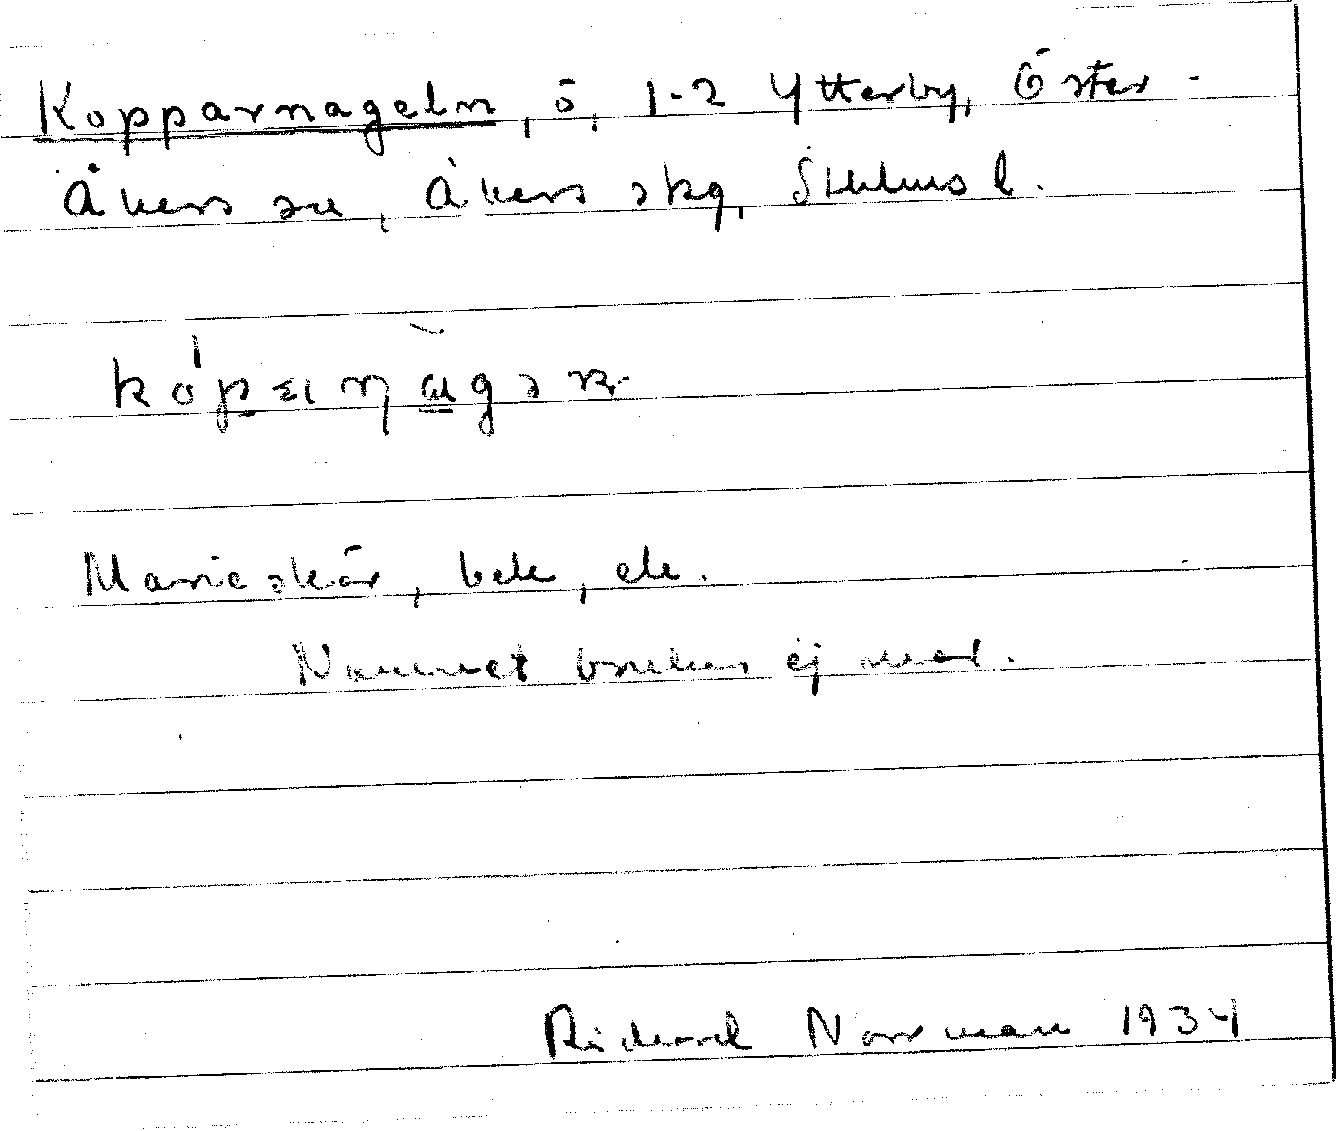 Kopparnageln, ö, 1-2 Ytterby, Öster-
Åkers sn, Åkers skg, Sthlms l.
Marieskär, bek, ek.
Namnet brukas ej med.
Rickard Norrman 1934